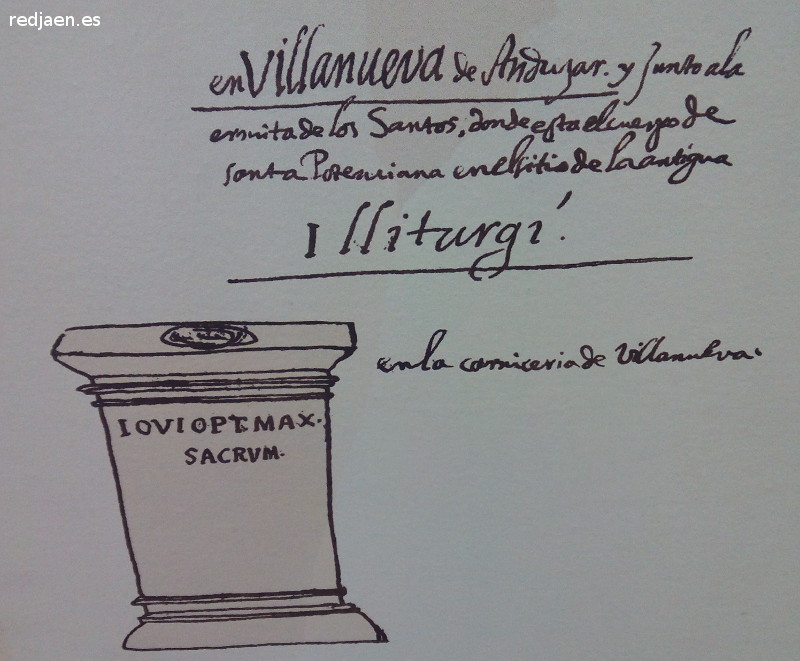 redjaen.es
en Villanueva de Anduxar. y Junto ala
ermita de los Santos, donde esta el cuerpo de
santa Potenciana en el sitio de la antigua
Illiturgi.
en la carniceria de Villanueva.
IOVI OPT. MAX.
SACRVM.